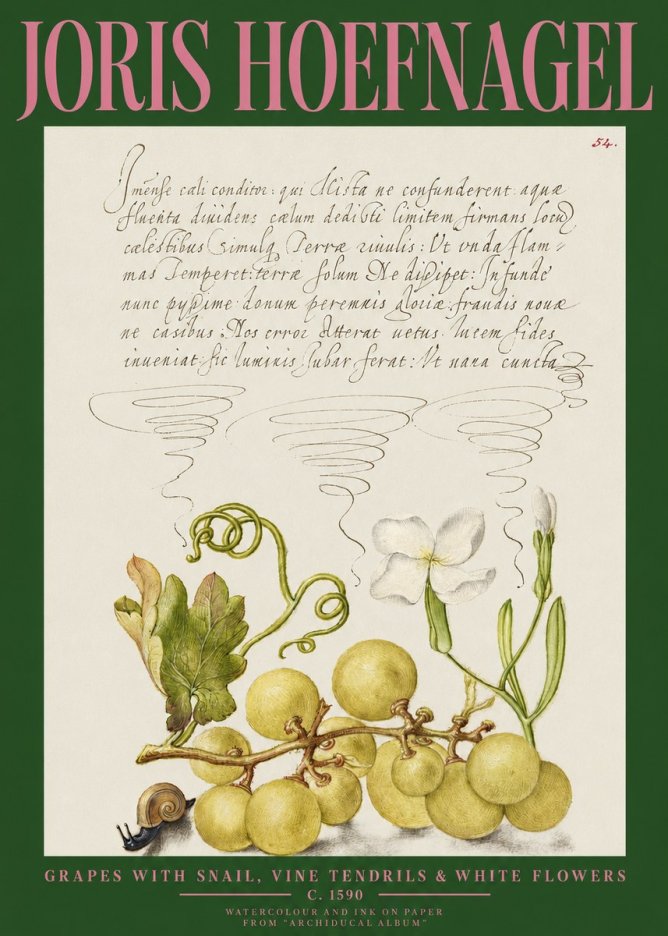 JORIS HOEFNAGEL
54.
Imense cæli conditor: qui Mista ne confunderent aquæ
fluenta diuidens cælum dedisti limitem firmans locū
cælestibus Simulq̃ Terræ riuulis: Vt vnda flam=
mas Temperet: terræ solum Ne dissipet: Infunde
nunc pyssime: donum perennis gloriæ: fraudis nouæ
ne casibus: Nos error Atterat uetus. lucem fides
inueniat: sic luminis Jubar ferat: Vt uana cuncta
GRAPES WITH SNAIL, VINE TENDRILS & WHITE FLOWERS
C. 1590
WATERCOLOUR AND INK ON PAPER
FROM "ARCHIDUCAL ALBUM"